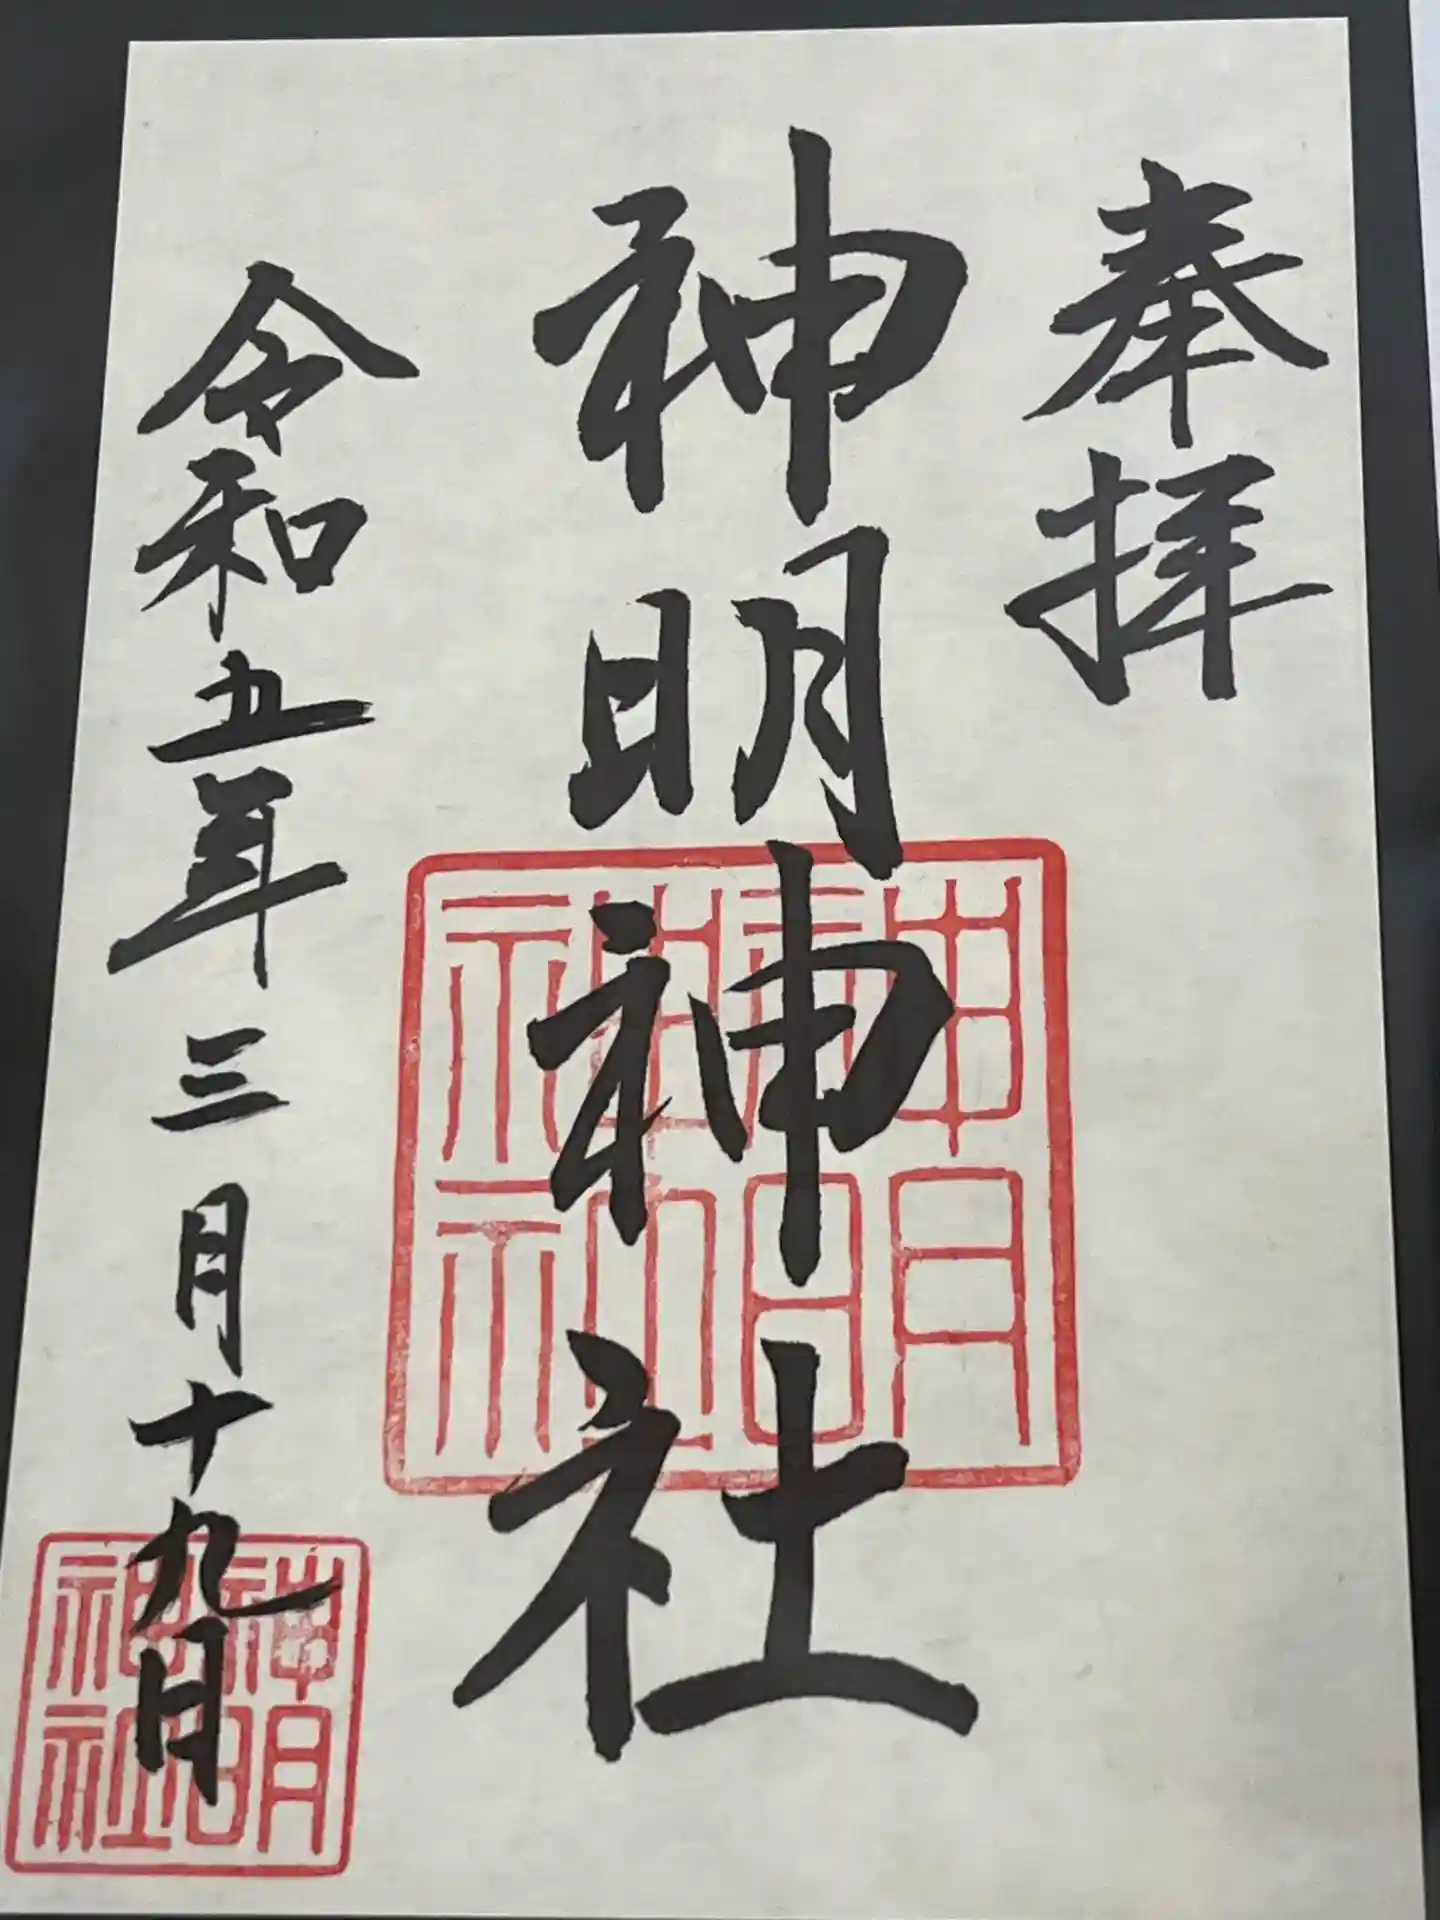 奉拝
神明神社
神明神社
令和五年三月十九日
神明神社